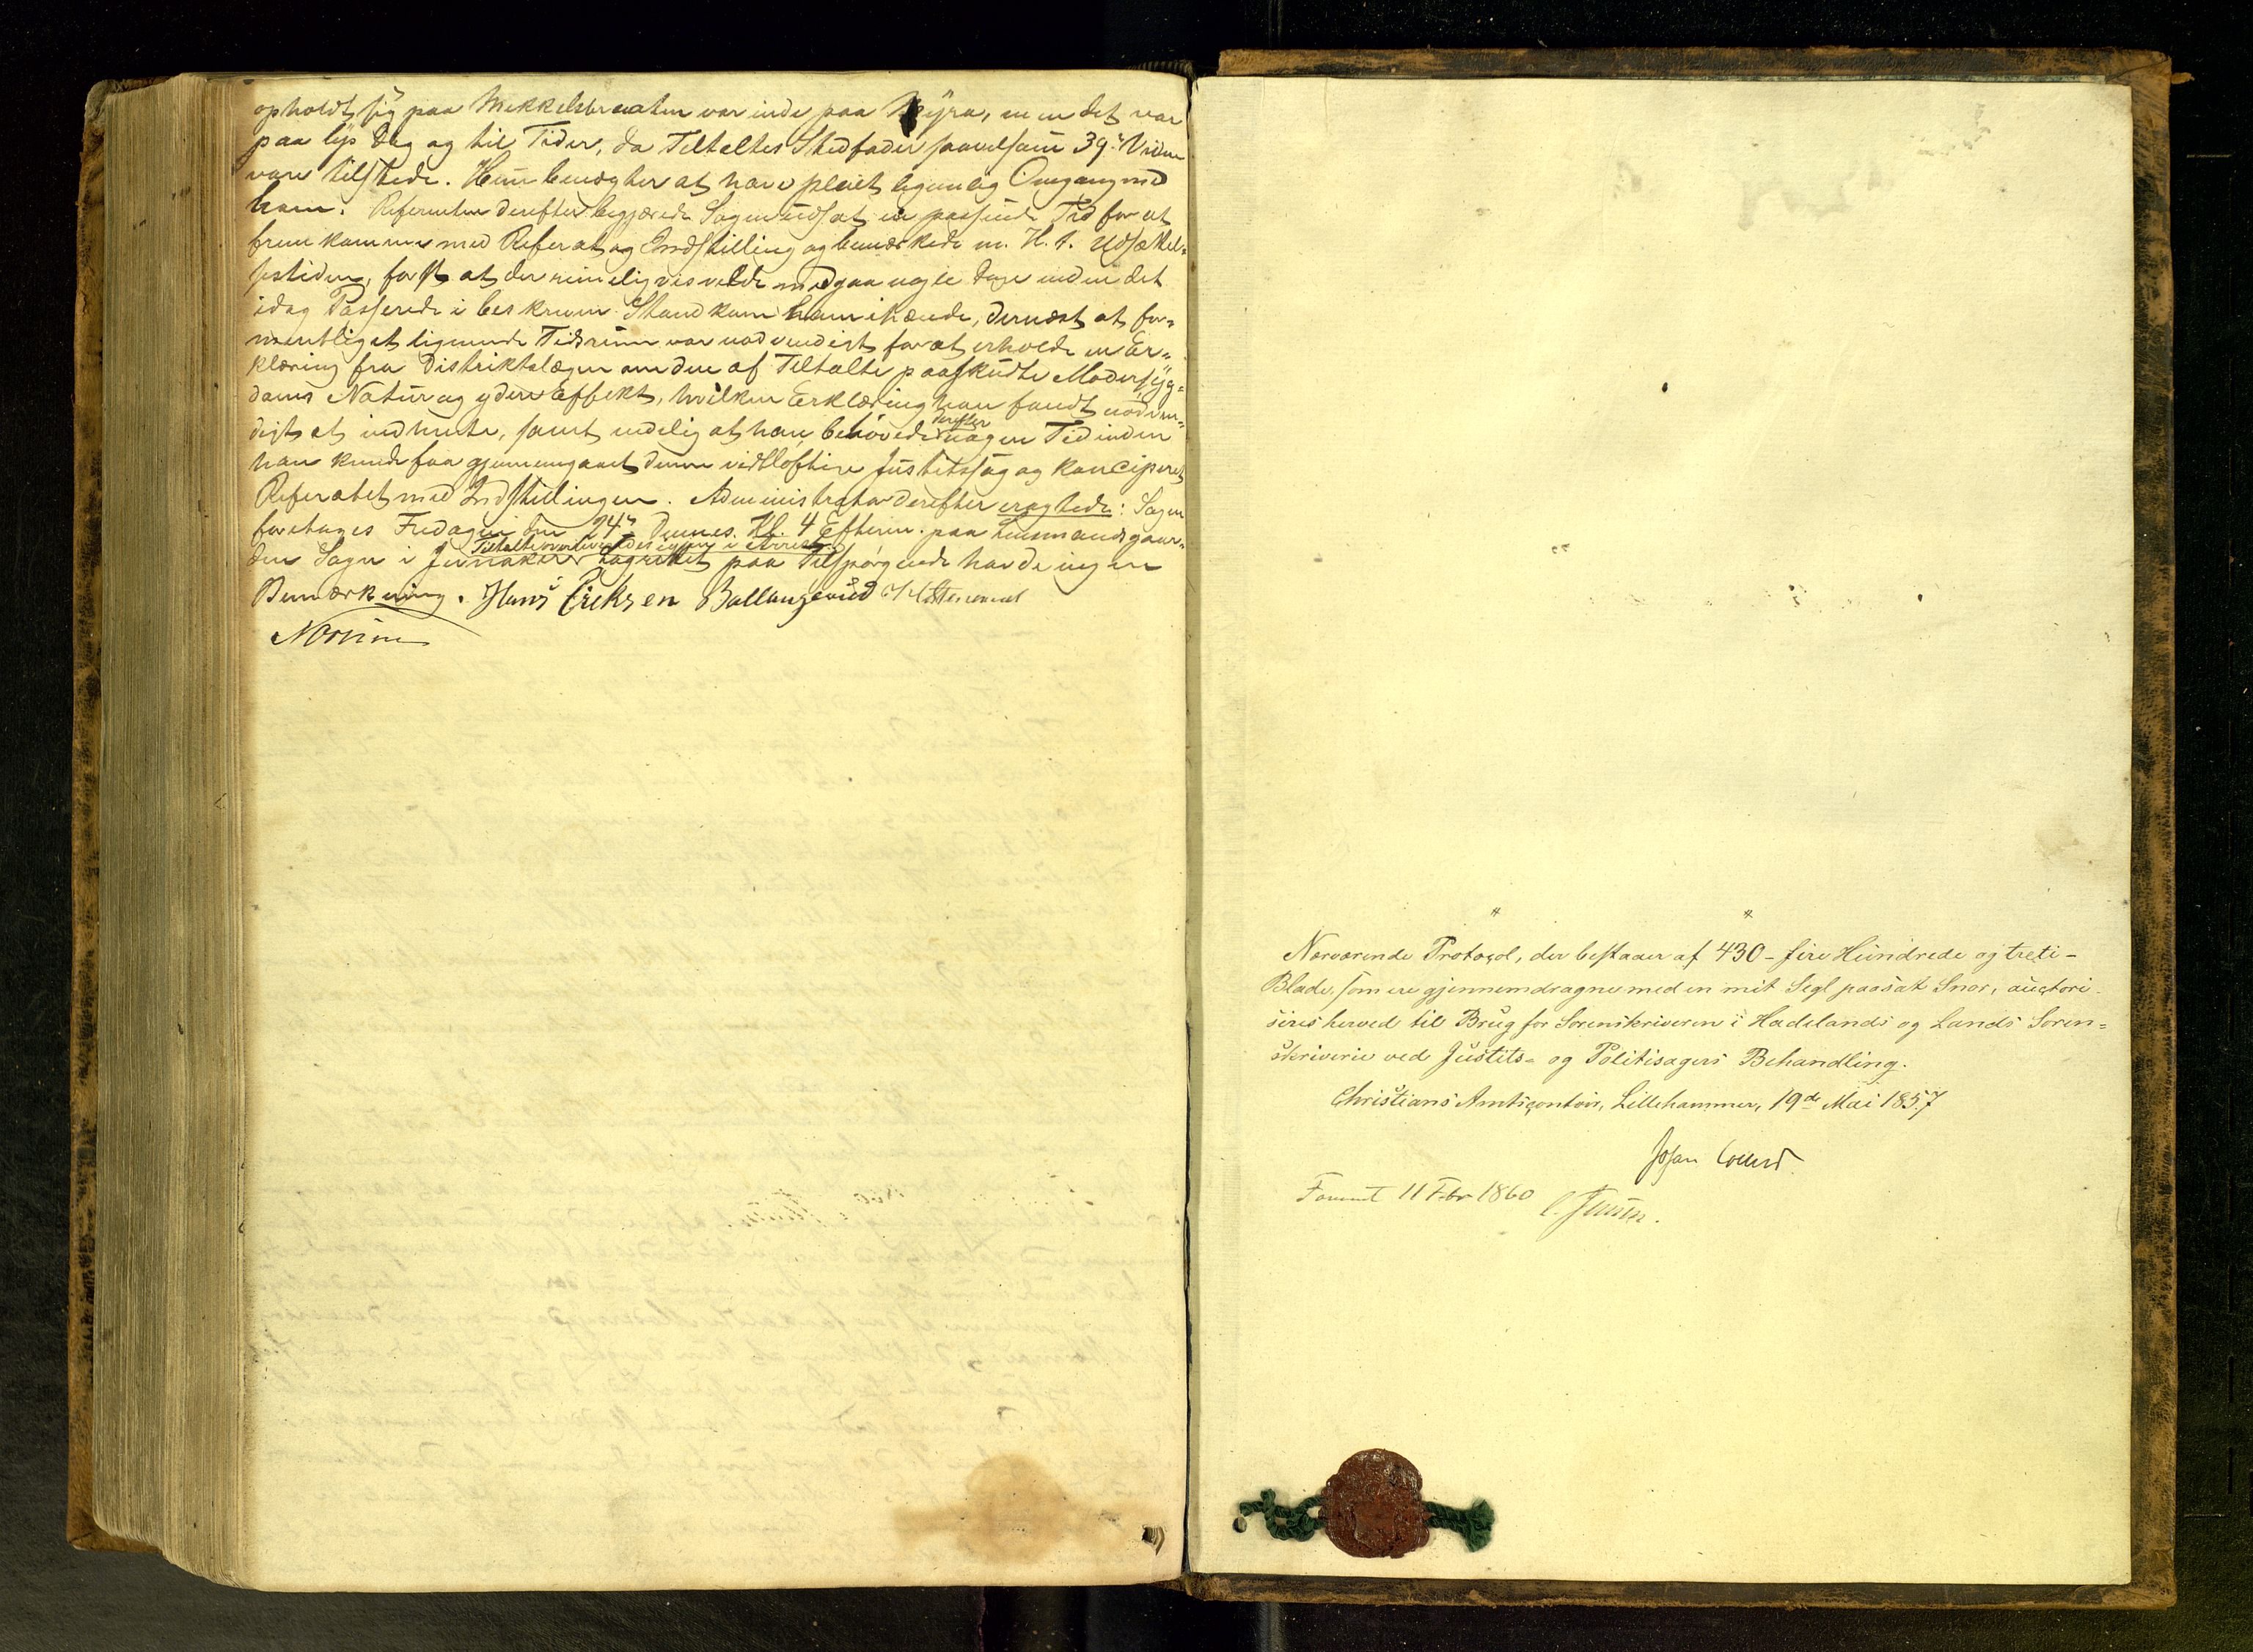 opholdt sig paa Mikkelsbraaten var inde paa Myra, men det var
paa lys Dag og til Tider, da Tiltaltes Stedfader saavelsom 39te Vidne
vare tilstede. Hun benægter at have pleiet legemlig Omgang med
ham. Referenten derefter begjærede Sagen udsat en passende Tid for at
fremkomme med Referat og Indstilling og bemærkede m. H. t. Udsættel-
sestiden, først at der rimeligvis vilde medgaa nogle Dage inden det
idag Passerede i beskreven Stand kom ham ihænde, dernæst at for-
mentligt et lignende Tidsrum var nødvendigt for at erholde en Er-
klæring fra Distriktslægen om den af Tiltalte paaskudte Modersyg-
doms Natur og ydere Effekt, hvilken Erklæring han fandt nødven-
digt at indhente, samt endelig at han behøvede derefter nogen Tid inden
han kunde faa gjennemgaaet denne vidtløftige Justitssag og konciperet
Referatet med Indstillingen. Administrator derefter eragtede: Sagen
foretages Fredagen den 24de Dennes. Kl. 4 Efterm. paa Lensmandsgaar-
Tiltalte overleveredes igjen i Arrest.
den Sogn i Jevnaker Lagrettet paa Tilspørgende havde ingen
Bemærkning. Hans Eriksen Ballangrud
Nærværende Protocol, der bestaaer af 430 - fire Hundrede og treti -
Blade, som ere gjennemdragne med en mit Segl paasat Snor, auctori-
seres herved til Brug for Sorenskriveren i Hadelands og Lands Soren=
skriverie ved Justits- og Politisagers Behandling.
Christians Amtscontoir, Lillehammer, 19de Mai 1857
Johan Collett
11 Febr 1860